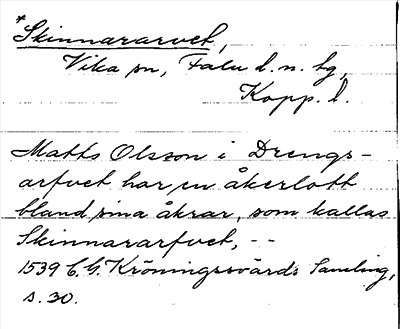 *Skinnararvet,
Vika sn, Falu d. n. hg,
Kopp. l.
Matts Olsson i Drengs-
arfvet har en åkerlott
bland sina åkrar, som kallas
Skinnararfvet, --
1539 C. G. Kröningssvärds Samling,
s. 30.